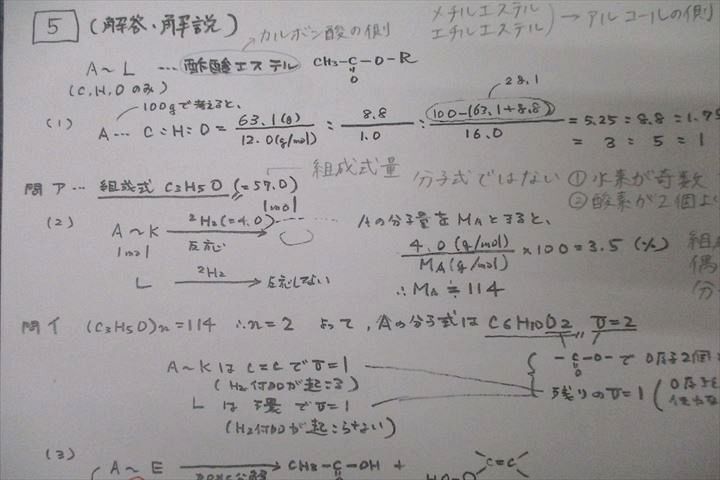 5 (解答・解説)
カルボン酸の側
メチルエステル
エチルエステル) → アルコールの側
A~L … 酢酸エステル CH3-C-O-R
O
(C,H,Oのみ)
100gで考えると、
28.1
(1) A… C:H:O = 63.1(g)/12.0(g/mol) : 8.8/1.0 : 100-(63.1+8.8)/16.0 = 5.25:8.8:1.75
= 3:5:1
組成式量
問ア… 組成式 C3H5O (=57.0)
分子式ではない ①水素が奇数
②酸素が2個
1mol
(2) A~K 2H2(=4.0) 反応
1mol
L 2H2 → 反応しない
Aの分子量をMAとすると、
4.0(g/mol)/MA(g/mol) ×100=3.5 (%)
∴MA≒114
問イ (C3H5O)n=114 ∴n=2 よって,Aの分子式はC6H10O2,, U=2
A~Kは C=CでU=1
(H2付加が起こる)
Lは 環でU=1
(H2付加が起こらない)
-C-O-で
O
残りのU=1
(3) A~E → CH3-C-OH +
C=C